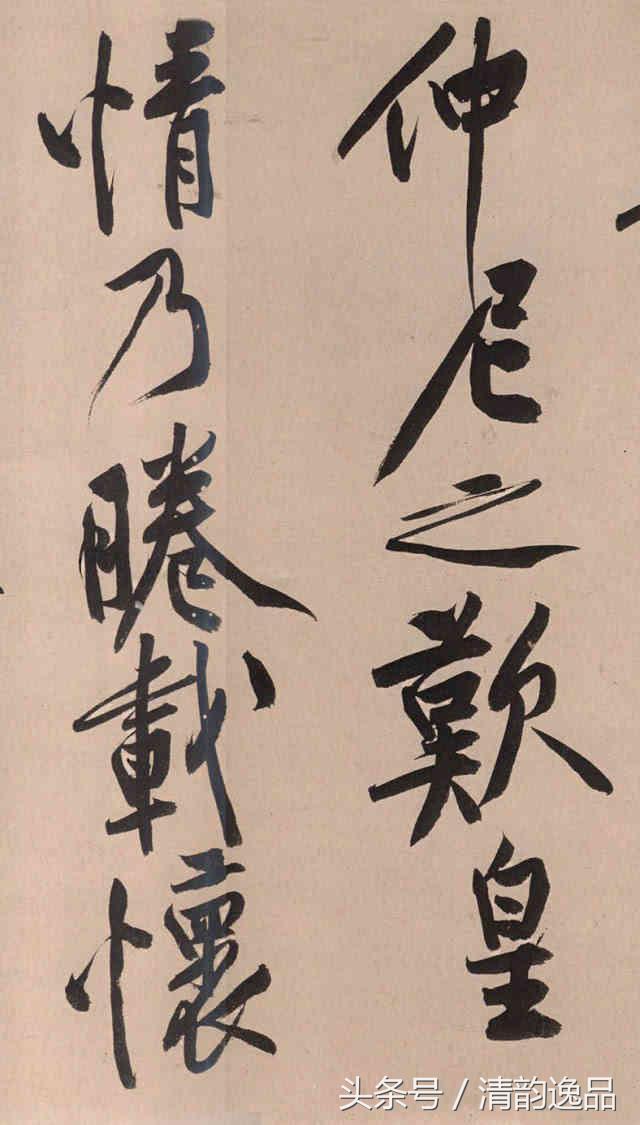 仲尼之歎皇
情乃睠載懷
头条号 / 清韵逸品